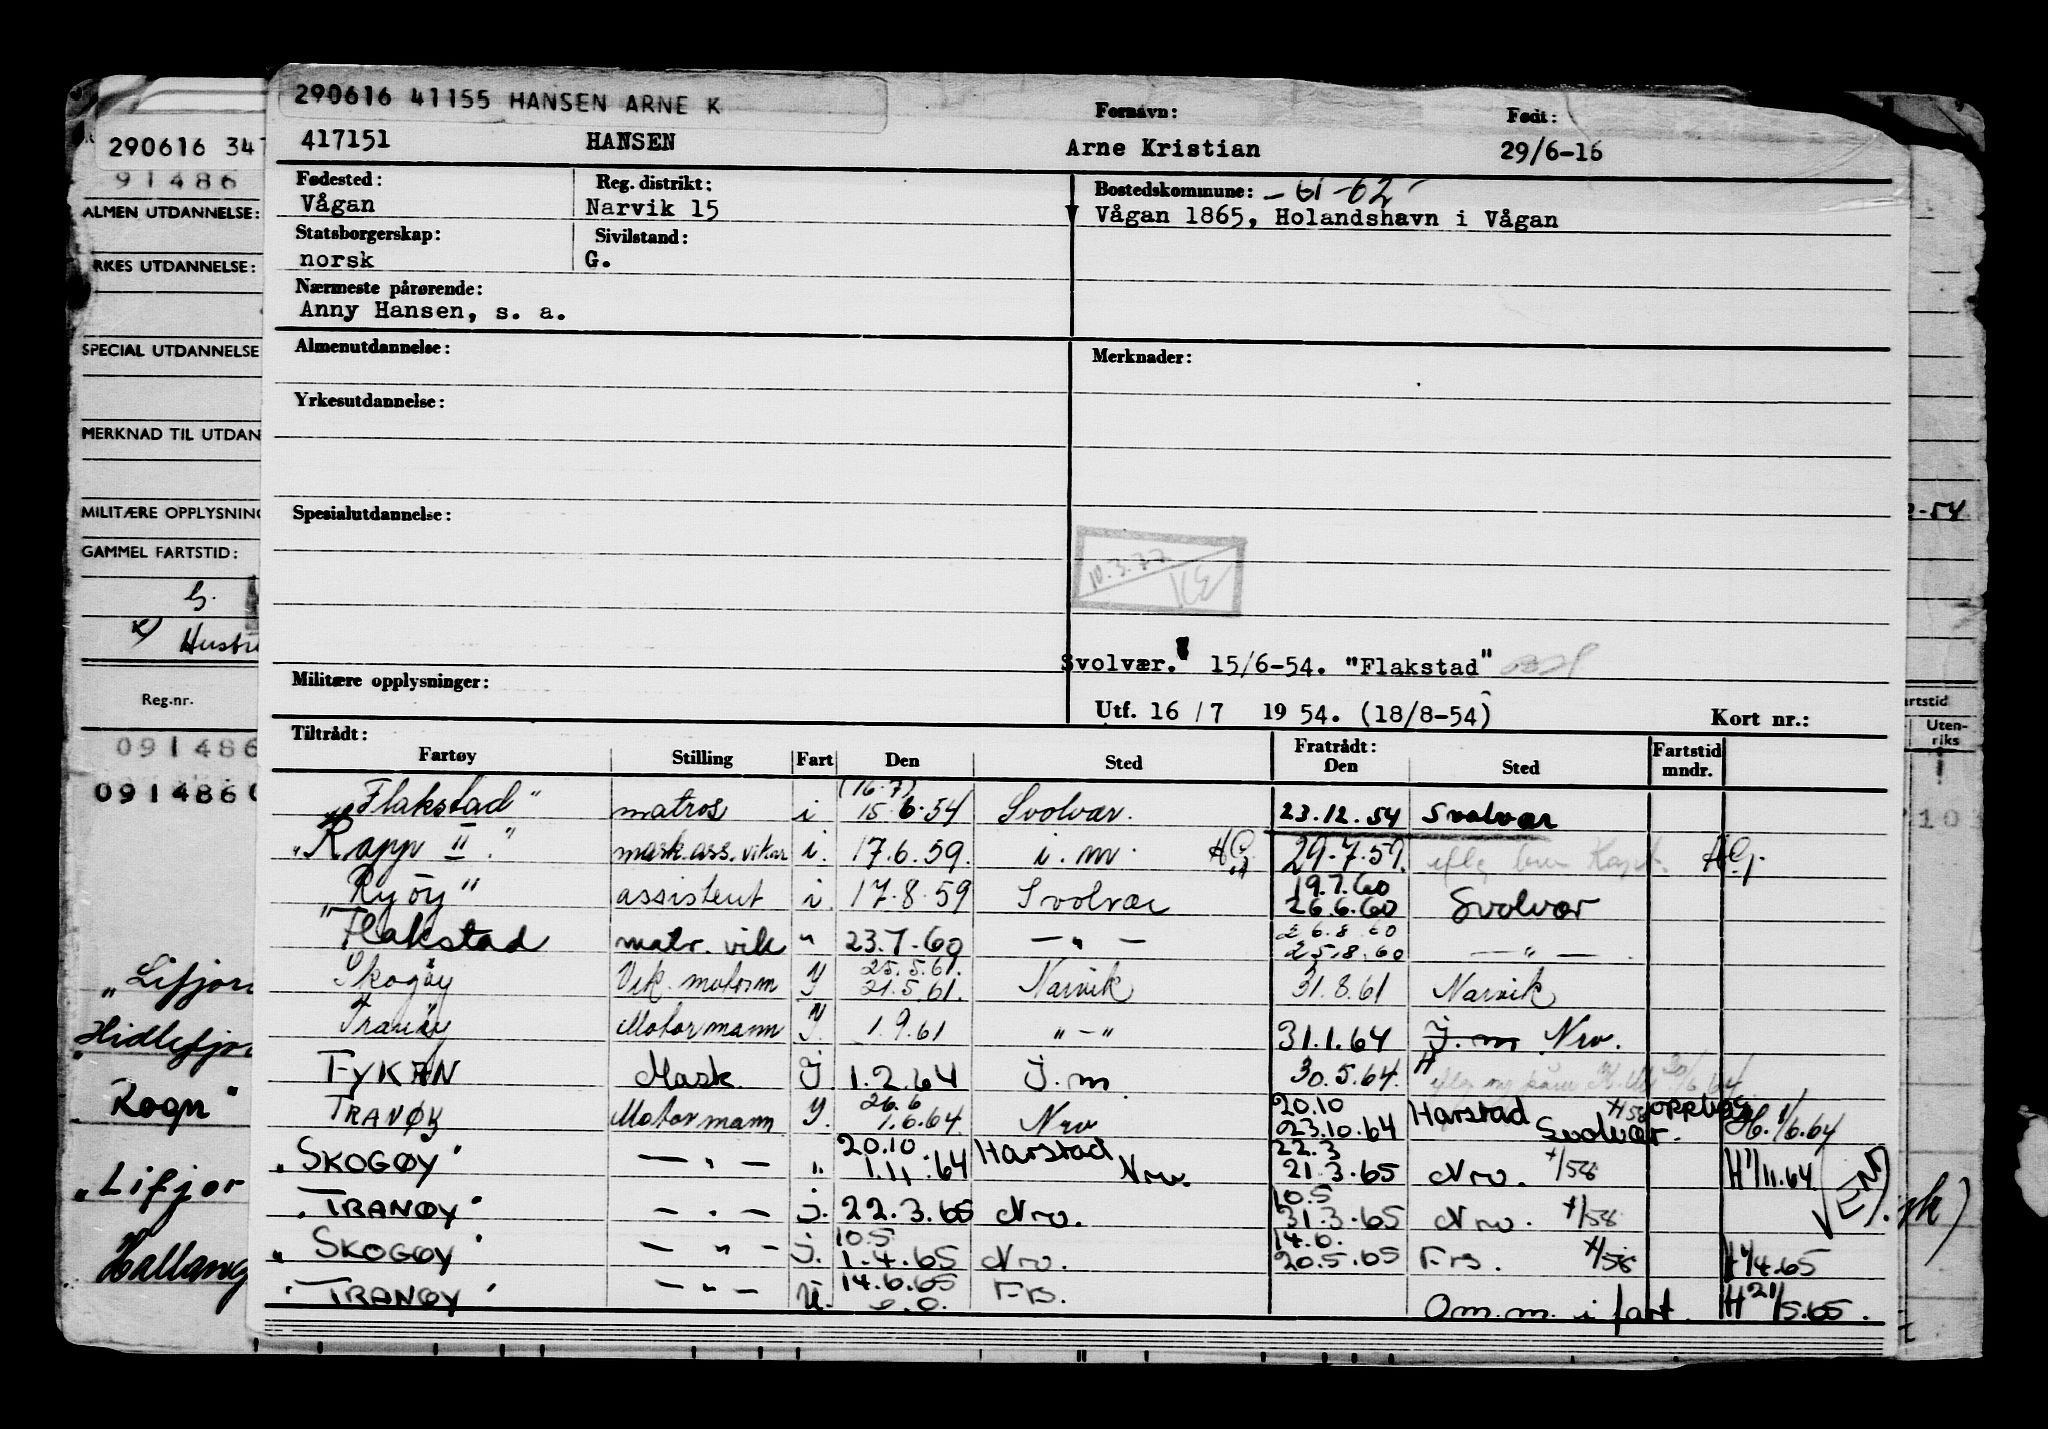 290616 41155 HANSEN ARNE K
417151 HANSEN
Fornavn: Arne Kristian
Født: 29/6-16
Fødested: Vågan
Reg. distrikt: Narvik 15
Bostedskommune: -61-62-
Vågan 1865, Holandshavn i Vågan
Statsborgerskap: norsk
Sivilstand: G.
Nærmeste pårørende:
Anny Hansen, s. a.
Almenutdannelse:
Merknader:
Yrkesutdannelse:
Spesialutdannelse:
10.3.77
Svolvær. 15/6-54. "Flakstad"
Militære opplysninger:
Utf. 16/7 1954. (18/8-54)
Kort nr.:
Tiltrådt: Fratrådt:
Fartøy Stilling Fart Den Sted Den Sted Fartstid mndr.
"Flakstad" matros i (16.7) 15.6.54 Svolvær. 23.12.54 Svolvær
"Rapp II." mask.ass. vikar i. 17.6.59. i.m. 29.7.59.
"Ryøy" assistent i. 17.8.59 Svolvær 19.7.60 26.6.60 Svolvær
Flakstad matr. vik " 23.7.60 — " — 26.8.60 25.8.60 — " —
Skogøy Vik. motorm Y 25.5.61. 21.5.61. Narvik 31.8.61 Narvik
Tranøy Motormann Y. 1.9.61 " - " 31.1.64 J.m Nrv.
TYKAN Mask. J. 1.2.64 J.m 30.5.64.
TRANØY Motormann Y. 26.6 1.6.64. Nrv 20.10 23.10.64 Harstad Svolvær. H. 1/6.64
"SKOGØY" — " — " 20.10 1.11.64 Harstad Nrv. 22.3 21.3.65 Nrv. x/58 H 1/11.64
"TRANØY" — " — j. 22.3.65 Nrv. 10.5 31.3.65 Nrv. x/58
"SKOGØY" — " — j. 10.5 1.4.65 Nrv. 14.6. 20.5.65 Frs. x/58 H 1/4.65
"TRANØY" — " — 14.6.65 Frs. Om.m. i fart. H 21/5.65.
290616 347
91486
ALMEN UTDANNELSE:
RKES UTDANNELSE:
SPECIAL UTDANNELSE
MERKNAD TIL UTDAN
MILITÆRE OPPLYSNING
GAMMEL FARTSTID:
G.
x) Hustr
Reg.nr.
091486
091486
"Lifjor
Hidlefjor
Rogn"
"Lifjor
Hallang
-54
artstid
Uten-
riks
10